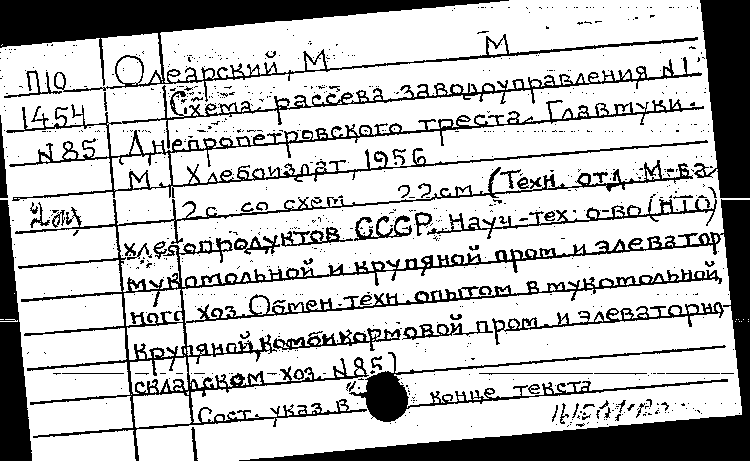 П10 Олеарский, М М
1454 Схема рассева заводоуправления №1
№85 Днепропетровского треста Главтуки.
М., Хлебоиздат, 1956
2 с. со схем. 22см. (Техн. отд. М-ва
хлебопродуктов СССР. Науч.-тех. о-во (НТО)
мукомольной и крупяной пром. и элеватор
ного хоз. Обмен. техн. опытом в мукомольной,
крупяной, комбикормовой пром. и элеваторно-
складском хоз. №85).
Сост. указ. в конце текста